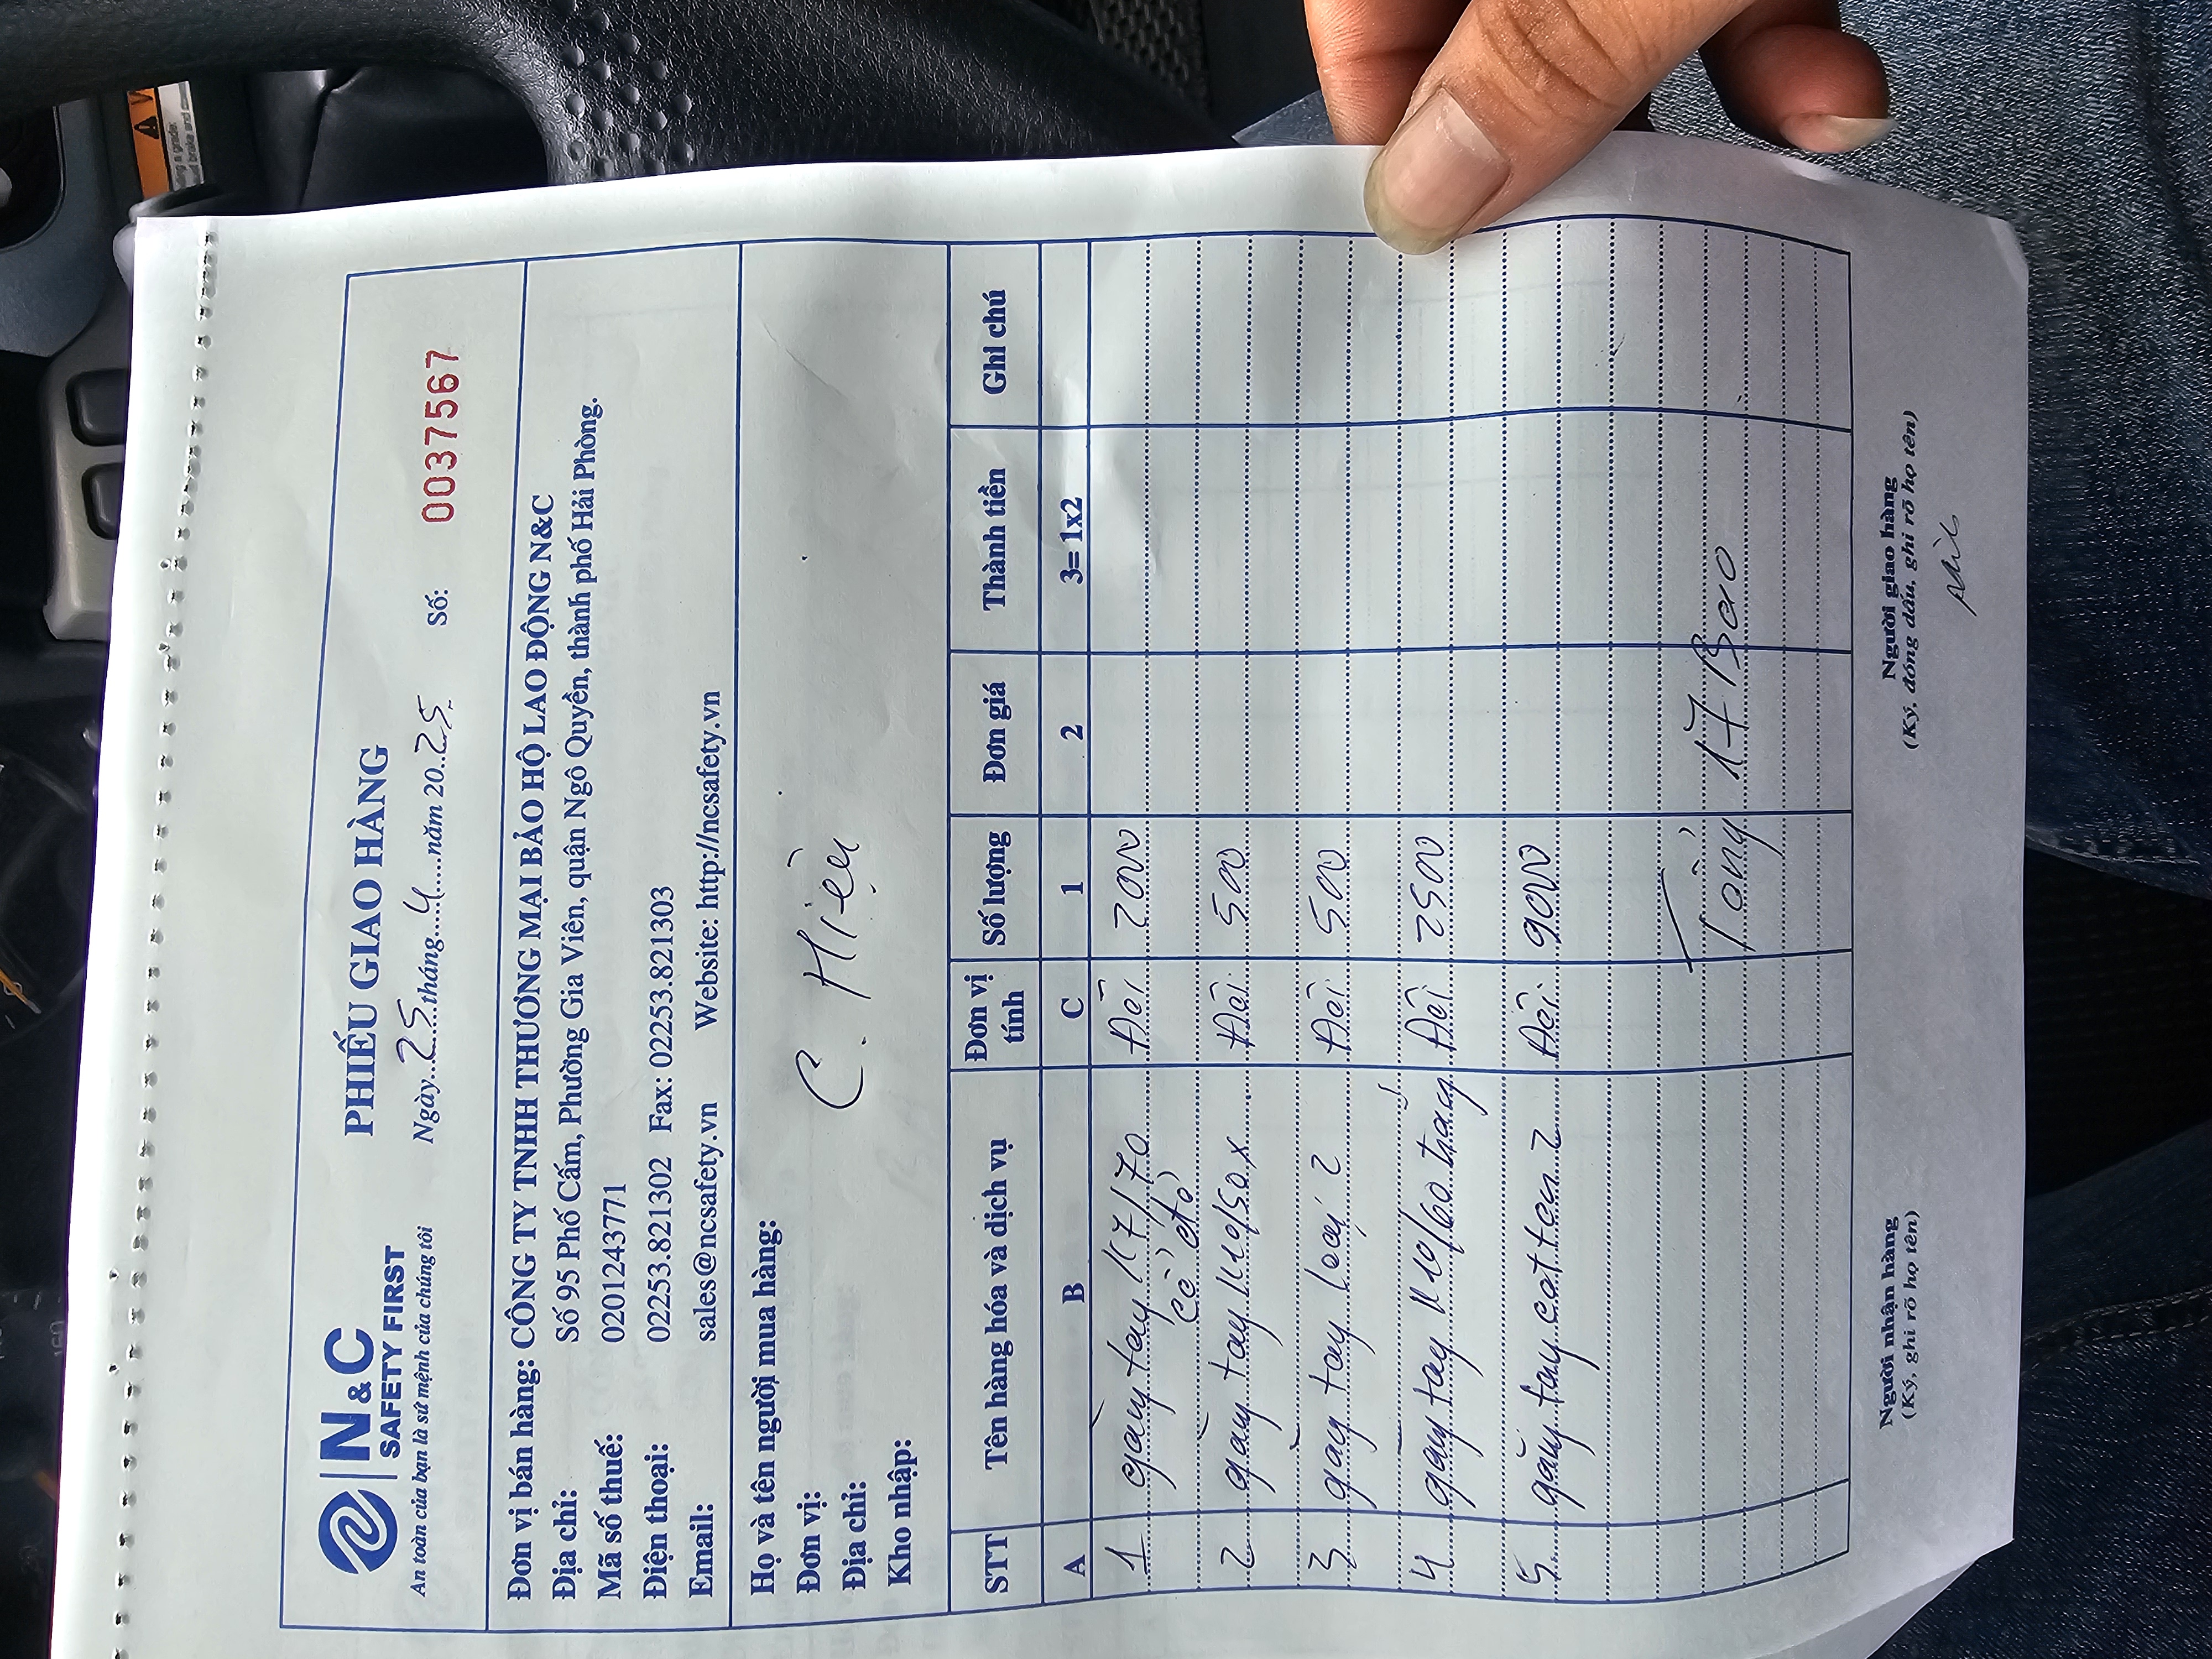 N&C
SAFETY FIRST
An toàn của bạn là sứ mệnh của chúng tôi
PHIẾU GIAO HÀNG
Ngày 25 tháng 4 năm 2025 Số: 0037567
Đơn vị bán hàng: CÔNG TY TNHH THƯƠNG MẠI BẢO HỘ LAO ĐỘNG N&C
Địa chỉ: Số 95 Phố Cấm, Phường Gia Viên, quận Ngô Quyền, thành phố Hải Phòng.
Mã số thuế: 0201243771
Điện thoại: 02253.821302 Fax: 02253.821303
Email: sales@ncsafety.vn Website: http://ncsafety.vn
Họ và tên người mua hàng:
Đơn vị: C. Hiền
Địa chỉ:
Kho nhập:
STT Tên hàng hóa và dịch vụ Đơn vị tính Số lượng Đơn giá Thành tiền Ghi chú
A B C 1 2 3= 1x2
1 găng tay K7/70 Đôi 2000
2 găng tay K10/50 x Đôi 500
3 găng tay loại 2 Đôi 500
4 găng tay K10/60 trắng Đôi 2500
5 găng tay cotton 2 Đôi 9000
Tổng 17 Bao
Người nhận hàng
(Ký, ghi rõ họ tên)
Người giao hàng
(Ký, đóng dấu, ghi rõ họ tên)